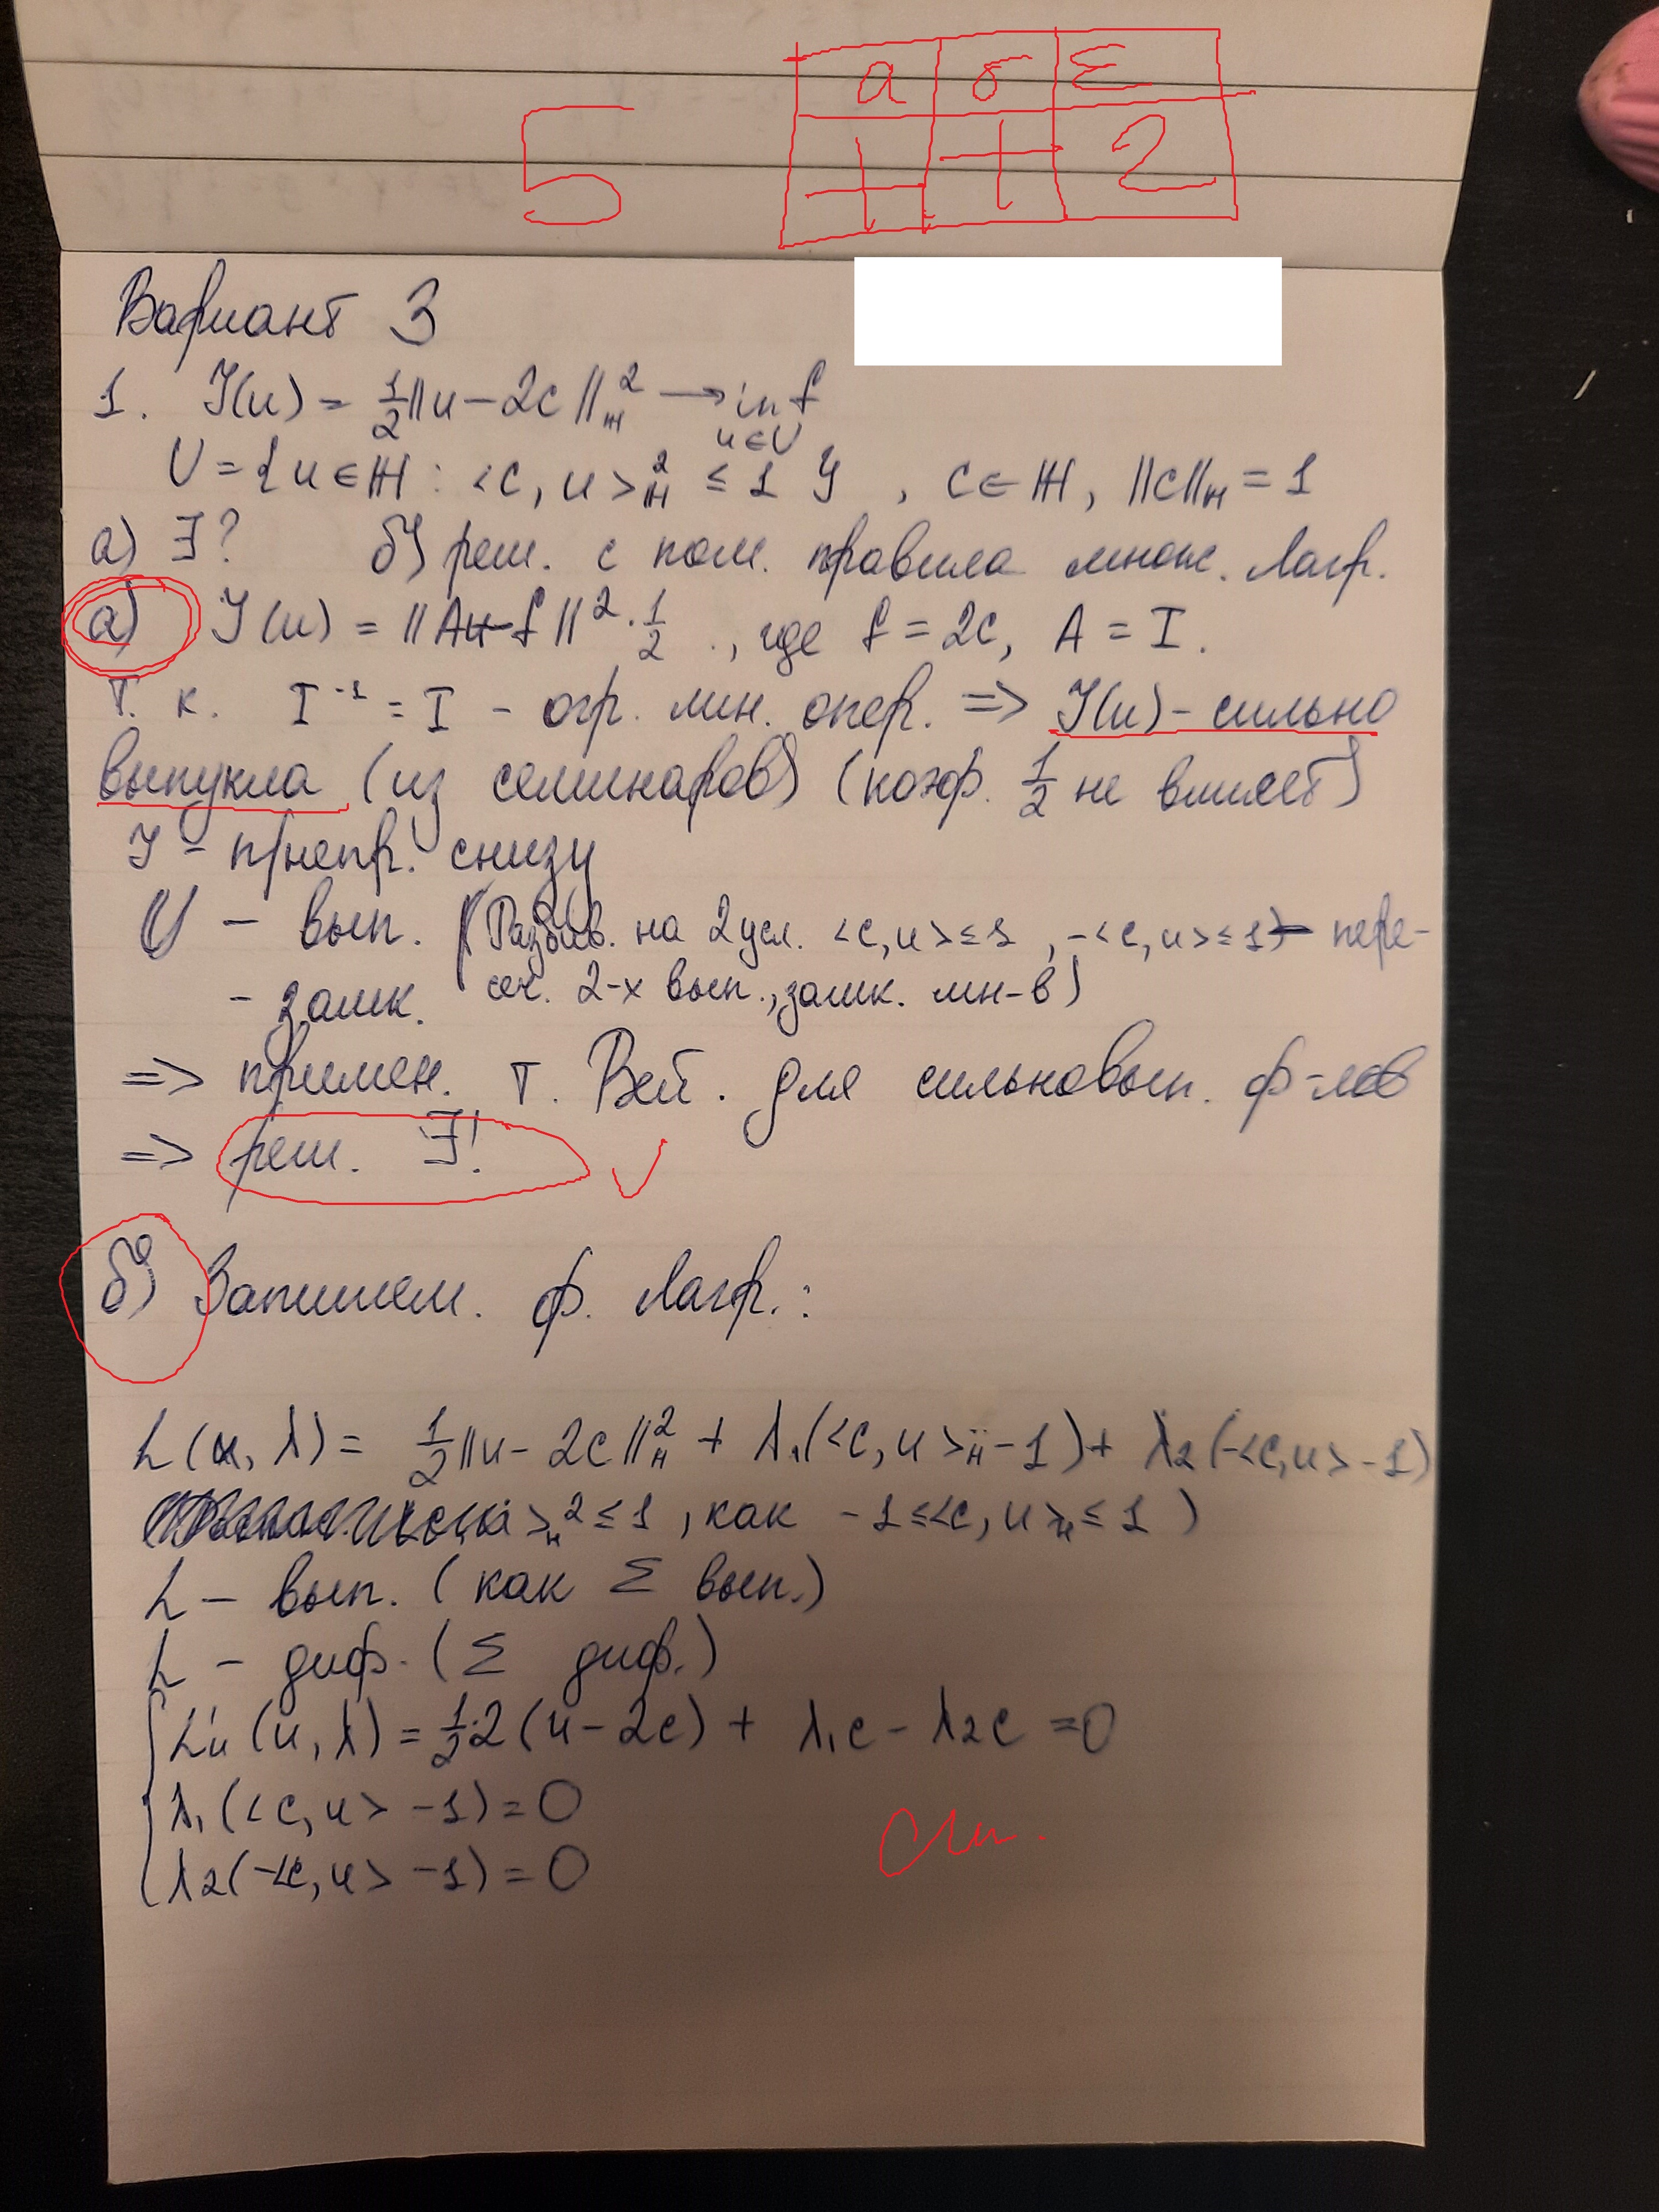 а б Σ
5 + + 2
Вариант 3
1. J(u) = 1/2 ||u - 2c||²_H → inf
u ∈ U
U = {u ∈ H : <c, u>²_H ≤ 1}, c ∈ H, ||c||_H = 1
а) ∃? б) реш. с пом. правила множ. Лагр.
а) J(u) = ||Au - f||² · 1/2, где f = 2c, A = I.
Т. к. I⁻¹ = I - огр. лин. опер. => J(u) - сильно
выпукла (из семинаров) (коэф. 1/2 не влияет)
J - п/непр. снизу
U - вып. (Разбив. на 2 усл. <c, u> ≤ 1, -<c, u> ≤ 1) - пере-
- замк. сеч. 2-х вып., замк. мн-в)
=> примен. т. Вей. для сильновып. ф-лов
=> реш. ∃!
б) Запишем. ф. Лагр.:
L(u, λ) = 1/2 ||u - 2c||²_H + λ₁(<c, u>_H - 1) + λ₂(-<c, u> - 1)
>_H² ≤ 1, как -1 ≤ <c, u>_H ≤ 1)
L - вып. (как Σ вып.)
L - диф. (Σ диф.)
L'u (u, λ) = 1/2·2(u - 2c) + λ₁c - λ₂c = 0
λ₁(<c, u> - 1) = 0
λ₂(-<c, u> - 1) = 0
См.